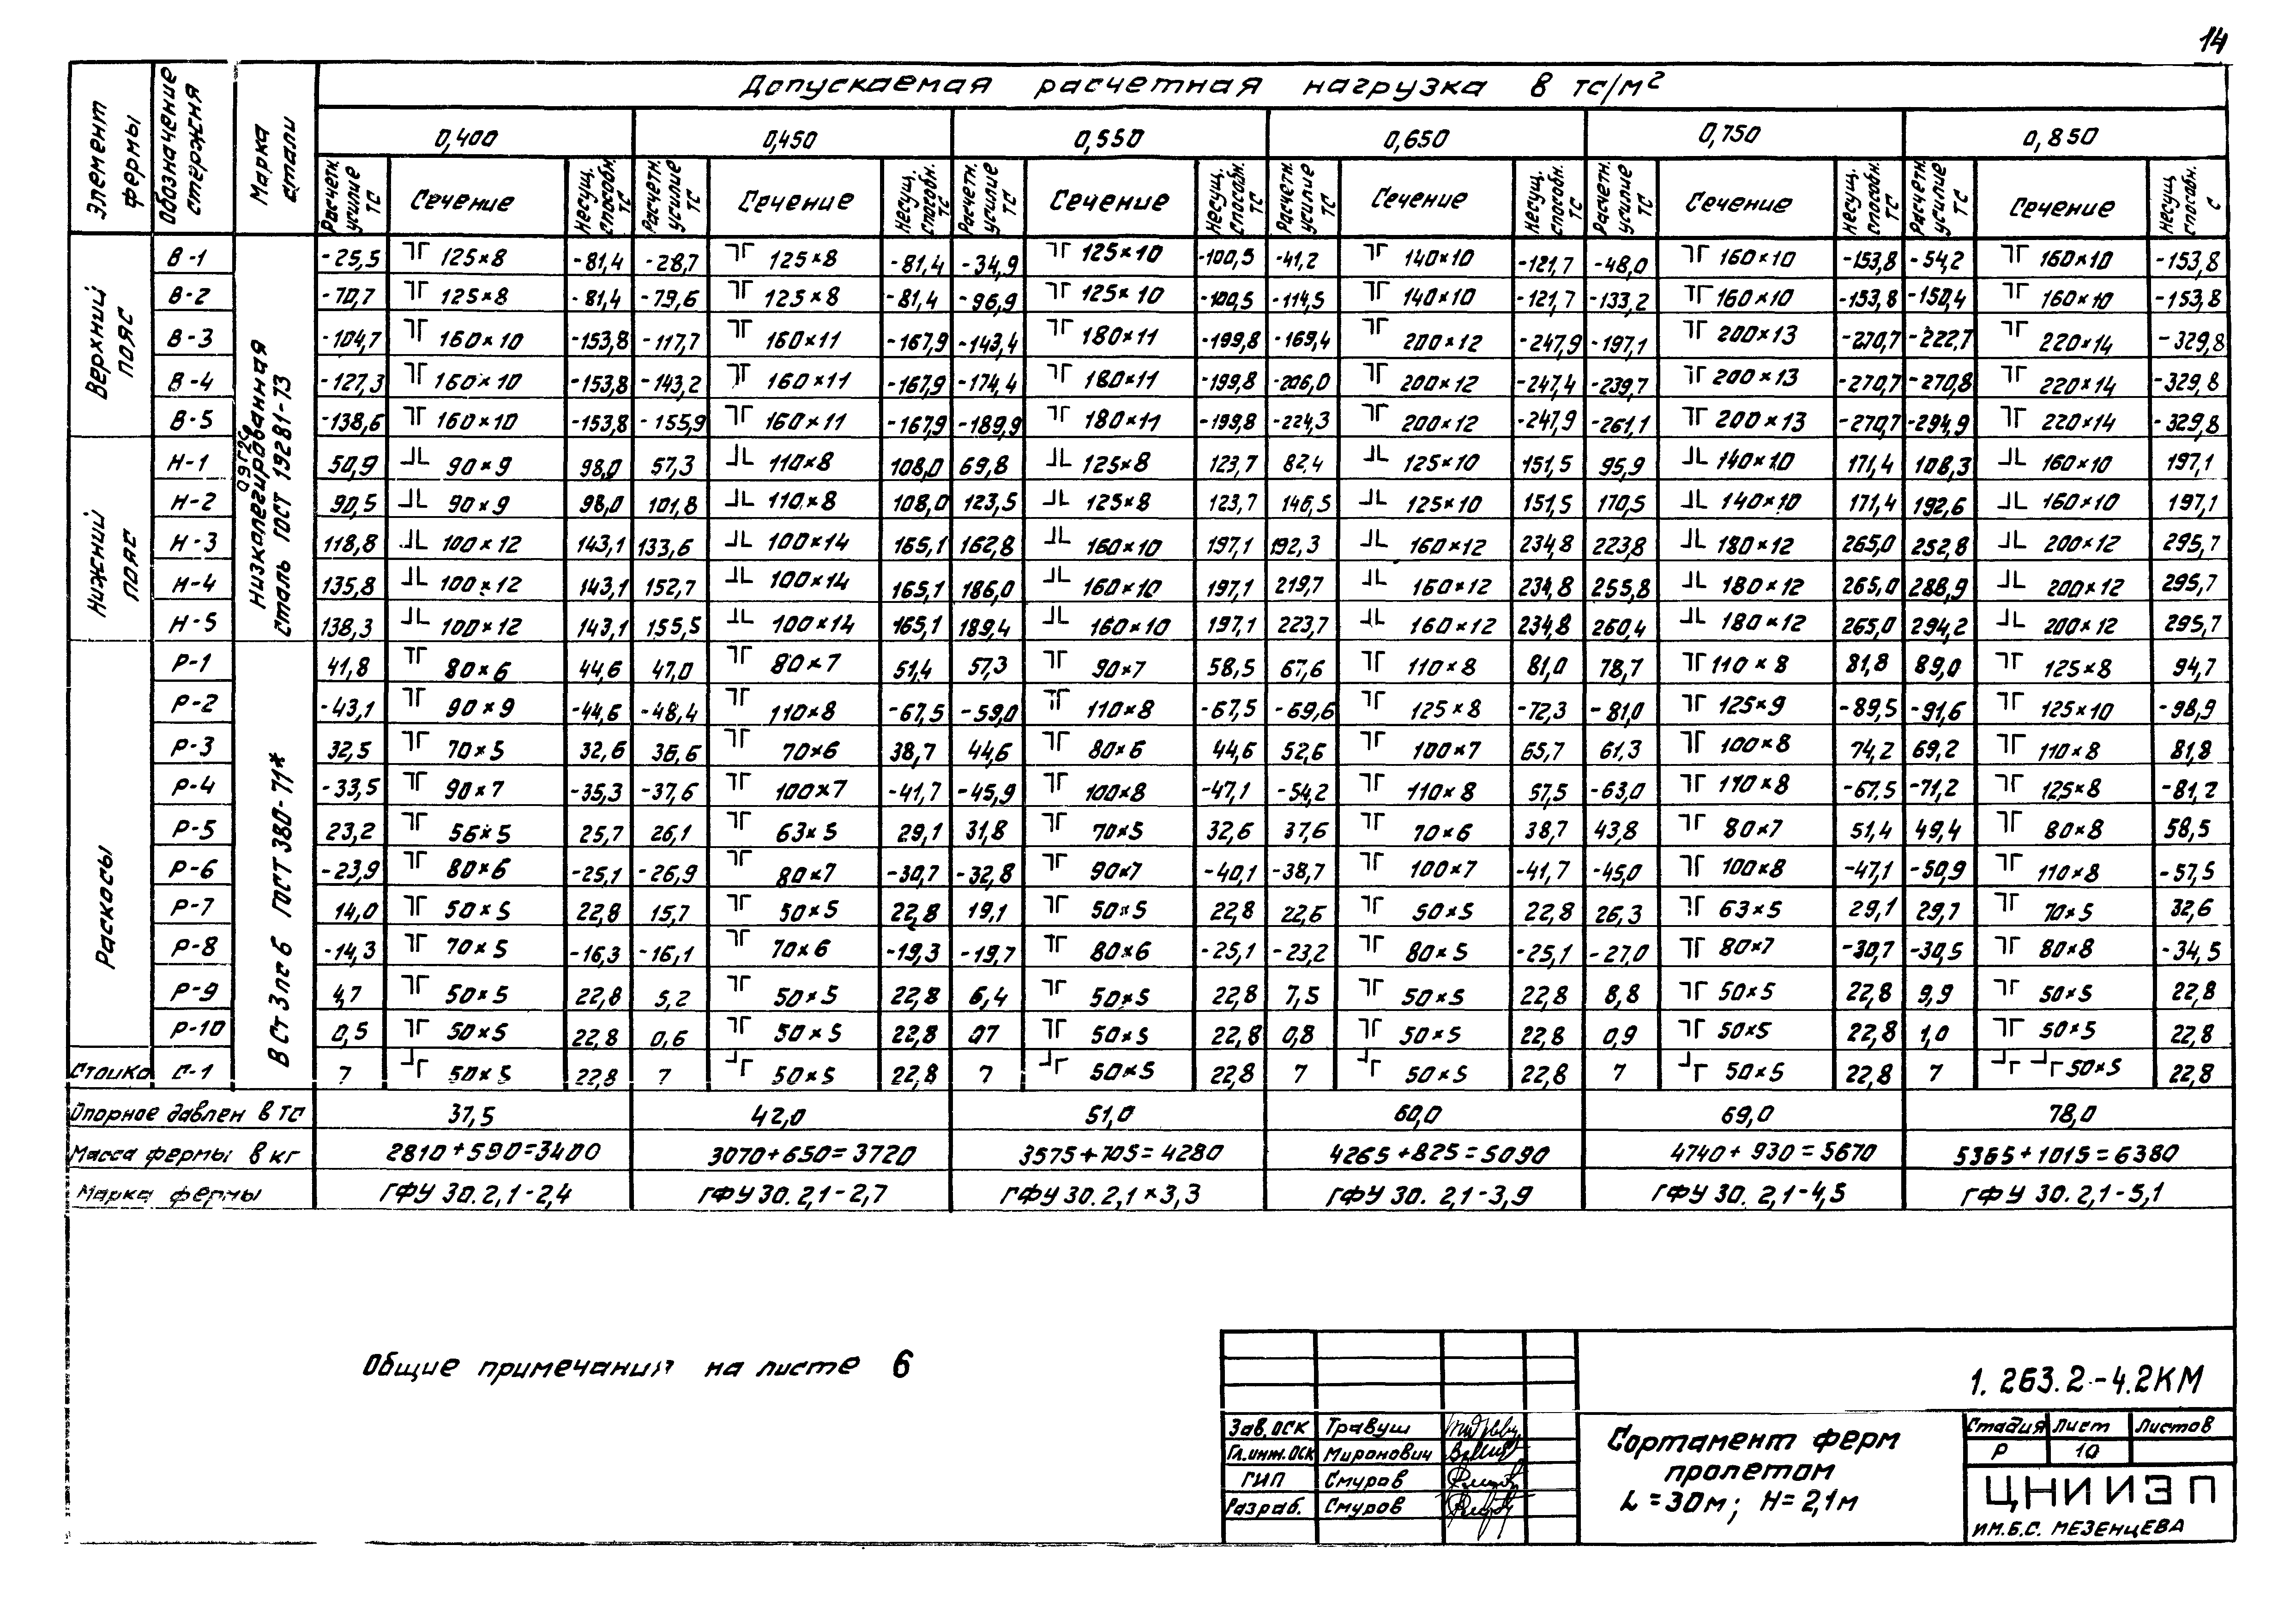 14
Элемент фермы | Обозначение стержня | Марка стали | Допускаемая расчетная нагрузка в тс/м²
0,400 | 0,450 | 0,550 | 0,650 | 0,750 | 0,850
Расчетн. усилие тс | Сечение | Несущ. способн. тс | Расчетн. усилие тс | Сечение | Несущ. способн. тс | Расчетн. усилие тс | Сечение | Несущ. способн. тс | Расчетн. усилие тс | Сечение | Несущ. способн. тс | Расчетн. усилие тс | Сечение | Несущ. способн. тс | Расчетн. усилие тс | Сечение | Несущ. способн. с
Верхний пояс
Низколегированная сталь ГОСТ 19281-73
09Г2С
В-1 | -25,5 | 125×8 | -81,4 | -28,7 | 125×8 | -81,4 | -34,9 | 125×10 | -100,5 | -41,2 | 140×10 | -121,7 | -48,0 | 160×10 | -153,8 | -54,2 | 160×10 | -153,8
В-2 | -70,7 | 125×8 | -81,4 | -79,6 | 125×8 | -81,4 | -96,9 | 125×10 | -100,5 | -114,5 | 140×10 | -121,7 | -133,2 | 160×10 | -153,8 | -150,4 | 160×10 | -153,8
В-3 | -104,7 | 160×10 | -153,8 | -117,7 | 160×11 | -167,9 | -143,4 | 180×11 | -199,8 | -169,4 | 200×12 | -247,9 | -197,1 | 200×13 | -270,7 | -222,7 | 220×14 | -329,8
В-4 | -127,3 | 160×10 | -153,8 | -143,2 | 160×11 | -167,9 | -174,4 | 180×11 | -199,8 | -206,0 | 200×12 | -247,4 | -239,7 | 200×13 | -270,7 | -270,8 | 220×14 | -329,8
В-5 | -138,6 | 160×10 | -153,8 | -155,9 | 160×11 | -167,9 | -189,9 | 180×11 | -199,8 | -224,3 | 200×12 | -247,9 | -261,1 | 200×13 | -270,7 | -294,9 | 220×14 | -329,8
Нижний пояс
Н-1 | 50,9 | 90×9 | 98,0 | 57,3 | 110×8 | 108,0 | 69,8 | 125×8 | 123,7 | 82,4 | 125×10 | 151,5 | 95,9 | 140×10 | 171,4 | 108,3 | 160×10 | 197,1
Н-2 | 90,5 | 90×9 | 98,0 | 101,8 | 110×8 | 108,0 | 123,5 | 125×8 | 123,7 | 146,5 | 125×10 | 151,5 | 170,5 | 140×10 | 171,4 | 192,6 | 160×10 | 197,1
Н-3 | 118,8 | 100×12 | 143,1 | 133,6 | 100×14 | 165,1 | 162,8 | 160×10 | 197,1 | 192,3 | 160×12 | 234,8 | 223,8 | 180×12 | 265,0 | 252,8 | 200×12 | 295,7
Н-4 | 135,8 | 100×12 | 143,1 | 152,7 | 100×14 | 165,1 | 186,0 | 160×10 | 197,1 | 219,7 | 160×12 | 234,8 | 255,8 | 180×12 | 265,0 | 288,9 | 200×12 | 295,7
Н-5 | 138,3 | 100×12 | 143,1 | 155,5 | 100×14 | 165,1 | 189,4 | 160×10 | 197,1 | 223,7 | 160×12 | 234,8 | 260,4 | 180×12 | 265,0 | 294,2 | 200×12 | 295,7
Раскосы
В Ст 3 пс 6 ГОСТ 380-71*
Р-1 | 41,8 | 80×6 | 44,6 | 47,0 | 80×7 | 51,4 | 57,3 | 90×7 | 58,5 | 67,6 | 110×8 | 81,0 | 78,7 | 110×8 | 81,8 | 89,0 | 125×8 | 94,7
Р-2 | -43,1 | 90×9 | -44,6 | -48,4 | 110×8 | -67,5 | -59,0 | 110×8 | -67,5 | -69,6 | 125×8 | -72,3 | -81,0 | 125×9 | -89,5 | -91,6 | 125×10 | -98,9
Р-3 | 32,5 | 70×5 | 32,6 | 36,6 | 70×6 | 38,7 | 44,6 | 80×6 | 44,6 | 52,6 | 100×7 | 65,7 | 61,3 | 100×8 | 74,2 | 69,2 | 110×8 | 81,8
Р-4 | -33,5 | 90×7 | -35,3 | -37,6 | 100×7 | -41,7 | -45,9 | 100×8 | -47,1 | -54,2 | 110×8 | 57,5 | -63,0 | 110×8 | -67,5 | -71,2 | 125×8 | -81,2
Р-5 | 23,2 | 56×5 | 25,7 | 26,1 | 63×5 | 29,1 | 31,8 | 70×5 | 32,6 | 37,6 | 70×6 | 38,7 | 43,8 | 80×7 | 51,4 | 49,4 | 80×8 | 58,5
Р-6 | -23,9 | 80×6 | -25,1 | -26,9 | 80×7 | -30,7 | -32,8 | 90×7 | -40,1 | -38,7 | 100×7 | -41,7 | -45,0 | 100×8 | -47,1 | -50,9 | 110×8 | -57,5
Р-7 | 14,0 | 50×5 | 22,8 | 15,7 | 50×5 | 22,8 | 19,1 | 50×5 | 22,8 | 22,6 | 50×5 | 22,8 | 26,3 | 63×5 | 29,1 | 29,7 | 70×5 | 32,6
Р-8 | -14,3 | 70×5 | -16,3 | -16,1 | 70×6 | -19,3 | -19,7 | 80×6 | -25,1 | -23,2 | 80×5 | -25,1 | -27,0 | 80×7 | -30,7 | -30,5 | 80×8 | -34,5
Р-9 | 4,7 | 50×5 | 22,8 | 5,2 | 50×5 | 22,8 | 6,4 | 50×5 | 22,8 | 7,5 | 50×5 | 22,8 | 8,8 | 50×5 | 22,8 | 9,9 | 50×5 | 22,8
Р-10 | 0,5 | 50×5 | 22,8 | 0,6 | 50×5 | 22,8 | 07 | 50×5 | 22,8 | 0,8 | 50×5 | 22,8 | 0,9 | 50×5 | 22,8 | 1,0 | 50×5 | 22,8
Стойка | С-1 | 7 | 50×5 | 22,8 | 7 | 50×5 | 22,8 | 7 | 50×5 | 22,8 | 7 | 50×5 | 22,8 | 7 | 50×5 | 22,8 | 7 | 50×5 | 22,8
Опорное давлен в тс | 37,5 | 42,0 | 51,0 | 60,0 | 69,0 | 78,0
Масса фермы в кг | 2810+590=3400 | 3070+650=3720 | 3575+705=4280 | 4265+825=5090 | 4740+930=5670 | 5365+1015=6380
Марка фермы | ГФУ 30.2,1-2,4 | ГФУ 30.2,1-2,7 | ГФУ 30.2,1×3,3 | ГФУ 30.2,1-3,9 | ГФУ 30.2,1-4,5 | ГФУ 30.2,1-5,1
Общие примечания на листе 6
1.263.2-4.2КМ
Зав. ОСК Травуш
Гл.инж.ОСК Миронович
ГИП Смуров
Разраб. Смуров
Сортамент ферм
пролетом
L=30м; H=2,1м
Стадия Лист Листов
Р 10
ЦНИИЭП
ИМ.Б.С. МЕЗЕНЦЕВА